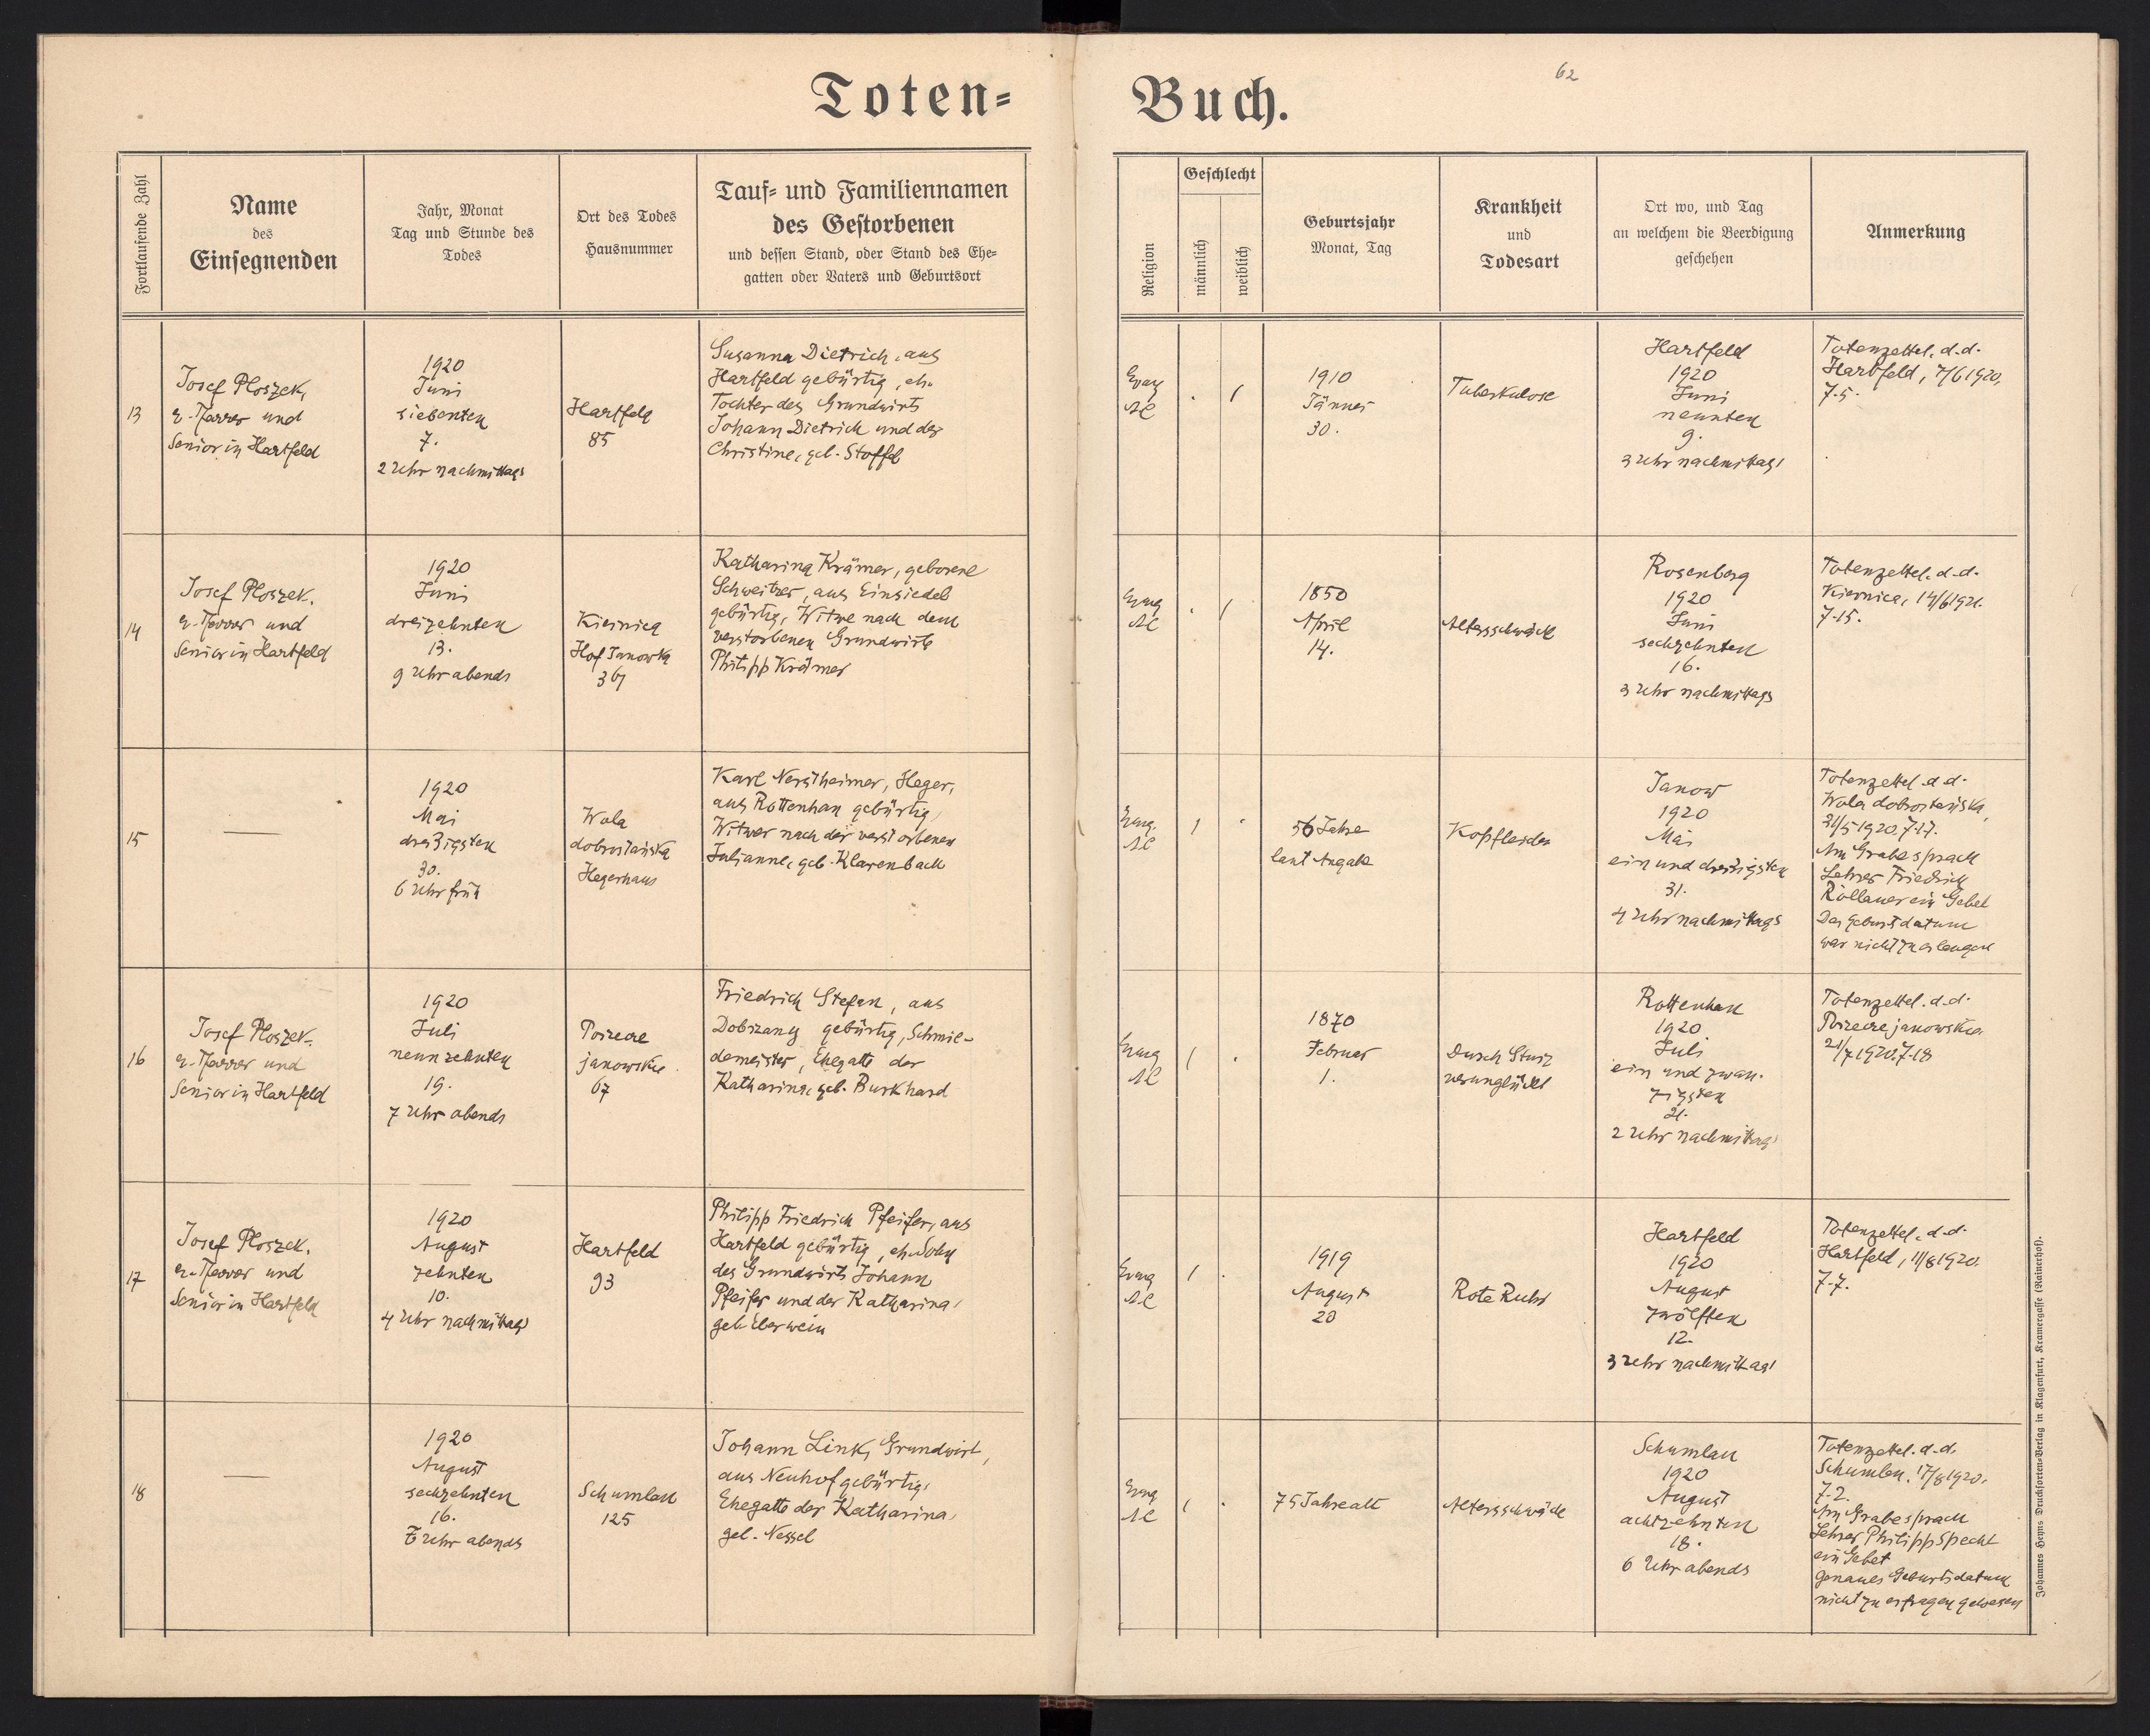 62
Toten-
Buch.
Fortlaufende Zahl
Name
des
Einsegnenden
Jahr, Monat
Tag und Stunde des
Todes
Ort des Todes
Hausnummer
Tauf- und Familiennamen
des Gestorbenen
und dessen Stand, oder Stand des Ehe-
gatten oder Vaters und Geburtsort
Religion
Geschlecht
männlich
weiblich
Geburtsjahr
Monat, Tag
Krankheit
und
Todesart
Ort wo, und Tag
an welchem die Beerdigung
geschehen
Anmerkung
13
Josef Ploszek,
e. Pfarrer und
Senior in Hartfeld
1920
Juni
siebenten
7.
2 Uhr nachmittags
Hartfeld
85
Susanna Dietrich, aus
Hartfeld gebürtig, eh.
Tochter des Grundwirts
Johann Dietrich und der
Christine, geb. Stoffel
Evang
AC
1910
Jänner
30.
Tuberkulose
Hartfeld
1920
Juni
neunten
9.
3 Uhr nachmittags
Totenzettel. d. d.
Hartfeld, 7/6 1920.
7-5.
14
Josef Ploszek.
e. Pfarrer und
Senior in Hartfeld
1920
Juni
dreizehnten
13.
9 Uhr abends
Kiernica
Hof Janowka
Katharina Krämer, geborene
Schweitzer, aus Einsiedel
gebürtig, Witwe nach dem
verstorbenen Grundwirte
Philipp Krämer
Evang
AC
1850
April
14.
Altersschwäche
Rosenberg
1920
Juni
sechzehnten
16.
3 Uhr nachmittags
Totenzettel. d. d.
Kiernica,
7-15.
15
—
1920
Mai
dreißigsten
30.
6 Uhr früh
Wola
dobrostańska
Hegerhaus
Karl Nerstheimer, Heger,
aus Rottenhan gebürtig,
Witwer nach der verstorbenen
Julianne, geb. Klarenbach
Evang.
AC
56 Jahre
laut Angabe
Kopfleiden
Janow
1920
Mai
ein und dreißigsten
31.
4 Uhr nachmittags
Totenzettel d. d.
Wola dobrostańska,
31/5 1920. 7-17.
Am Grabe sprach
Lehrer Friedrich
Rollauer ein Gebet
Das Geburtsdatum
war nicht zu erlangen
16
Josef Ploszek.
e. Pfarrer und
Senior in Hartfeld
1920
Juli
neunzehnten
19.
7 Uhr abends
Porzecze
janowskie
67
Friedrich Stefan, aus
Dobrzany gebürtig, Schmie-
demeister, Ehegatte der
Katharina, geb. Burkhard
Evang
AC
1870
Februar
1.
Durch Sturz
verunglückt
Rottenhan
1920
Juli
ein und zwan-
zigsten
21.
2 Uhr nachmittags
Totenzettel. d. d.
Porzecze janowskie.
21/7 1920. 7-18
17
Josef Ploszek.
e. Pfarrer und
Senior in Hartfeld
1920
August
zehnten
10.
4 Uhr nachmittags
Hartfeld
93
Philipp Friedrich Pfeifer, aus
Hartfeld gebürtig, eh. Sohn
des Grundwirts Johann
Pfeifer und der Katharina,
geb. Eberwein
Evang
AC
1919
August
20
Rote Ruhr
Hartfeld
1920
August
zwölften
12.
3 Uhr nachmittags
Totenzettel. d. d.
Hartfeld, 11/8 1920.
7-7.
18
—
1920
August
sechzehnten
16.
Uhr abends
Schumlau
125
Johann Link, Grundwirt,
aus Neuhof gebürtig,
Ehegatte der Katharina,
geb. Nessel
Evang
AC
75 Jahre alt
Altersschwäche
Schumlau
1920
August
achtzehnten
18.
6 Uhr abends
Totenzettel. d. d.
Schumlau, 17/8 1920.
7-2.
Am Grabe sprach
Lehrer Philipp Specht
ein Gebet
genaues Geburtsdatum
nicht zu erfragen gewesen
Johannes Heyns Drucksorten-Verlag in Klagenfurt, Kramergasse (Rainerhof).